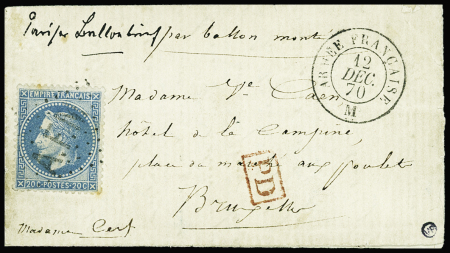 par ballon monté
ARMÉE FRANÇAISE
12
DÉC.
70
M
EMPIRE FRANÇAIS
20C·POSTES·20C
Madame Ve Caen
hôtel de la Campine,
place du marché aux poulets
PD
Bruxelles
Madame Cerf